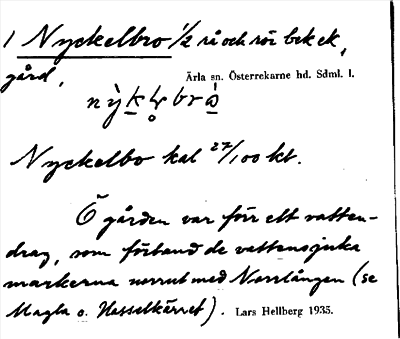 1 Nyckelbro 1/2 rå och rör bek ek,
gård, Ärla sn. Österrekarne hd. Sdml. l.
Nyckelbo kal 27/100 kt.
Ö gården var förr ett vatten-
drag, som förband de vattensjuka
markerna norrut med Norrlången (se
Magla o. Hasselkärret). Lars Hellberg 1935.